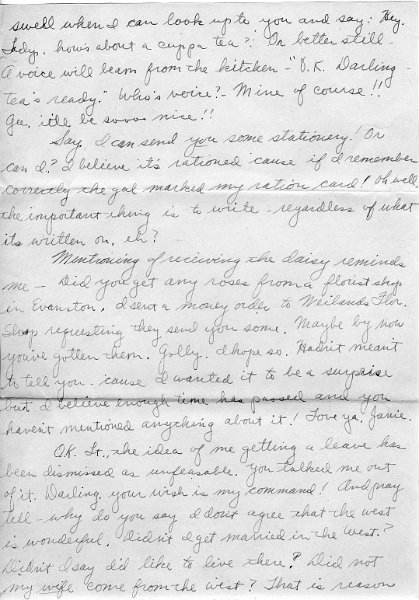 swell when I can look up to you and say: Hey,
Lady, how's about a cuppa tea?! Or better still -
A voice will beam from the kitchen - "O.K. Darling -
tea's ready." Who's voice? - Mine of course!!
Gee, it'll be soooo nice!!
Say, I can send you some stationery! Or
can I? I believe it's rationed 'cause if I remember
correctly the gal marked my ration card! Oh well
the important thing is to write - regardless of what
its written on, eh?
Mentioning of receiving the daisy reminds
me - Did you get any roses from a florist shop
in Evanston. I sent a money order to Weilands Flor.
Shop requesting they send you some. Maybe by now
you've gotten them. Golly, I hope so. Hadn't meant
to tell you - 'cause I wanted it to be a surprise
but I believe enough time has passed and you
haven't mentioned anything about it! Love ya, Janie.
OK. Lt., the idea of me getting a leave has
been dismissed as unfeasable. You talked me out
of it. Darling, your wish is my command! And pray
tell - why do you say I don't agree that the west
is wonderful. Didn't I get married in the West?
Didn't I say I'd like to live there? Did not
my wife come from the West? That is reason